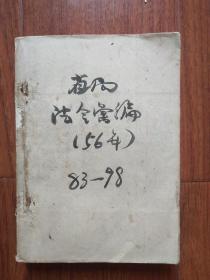 省内
法令彙编
(56年)
83—98